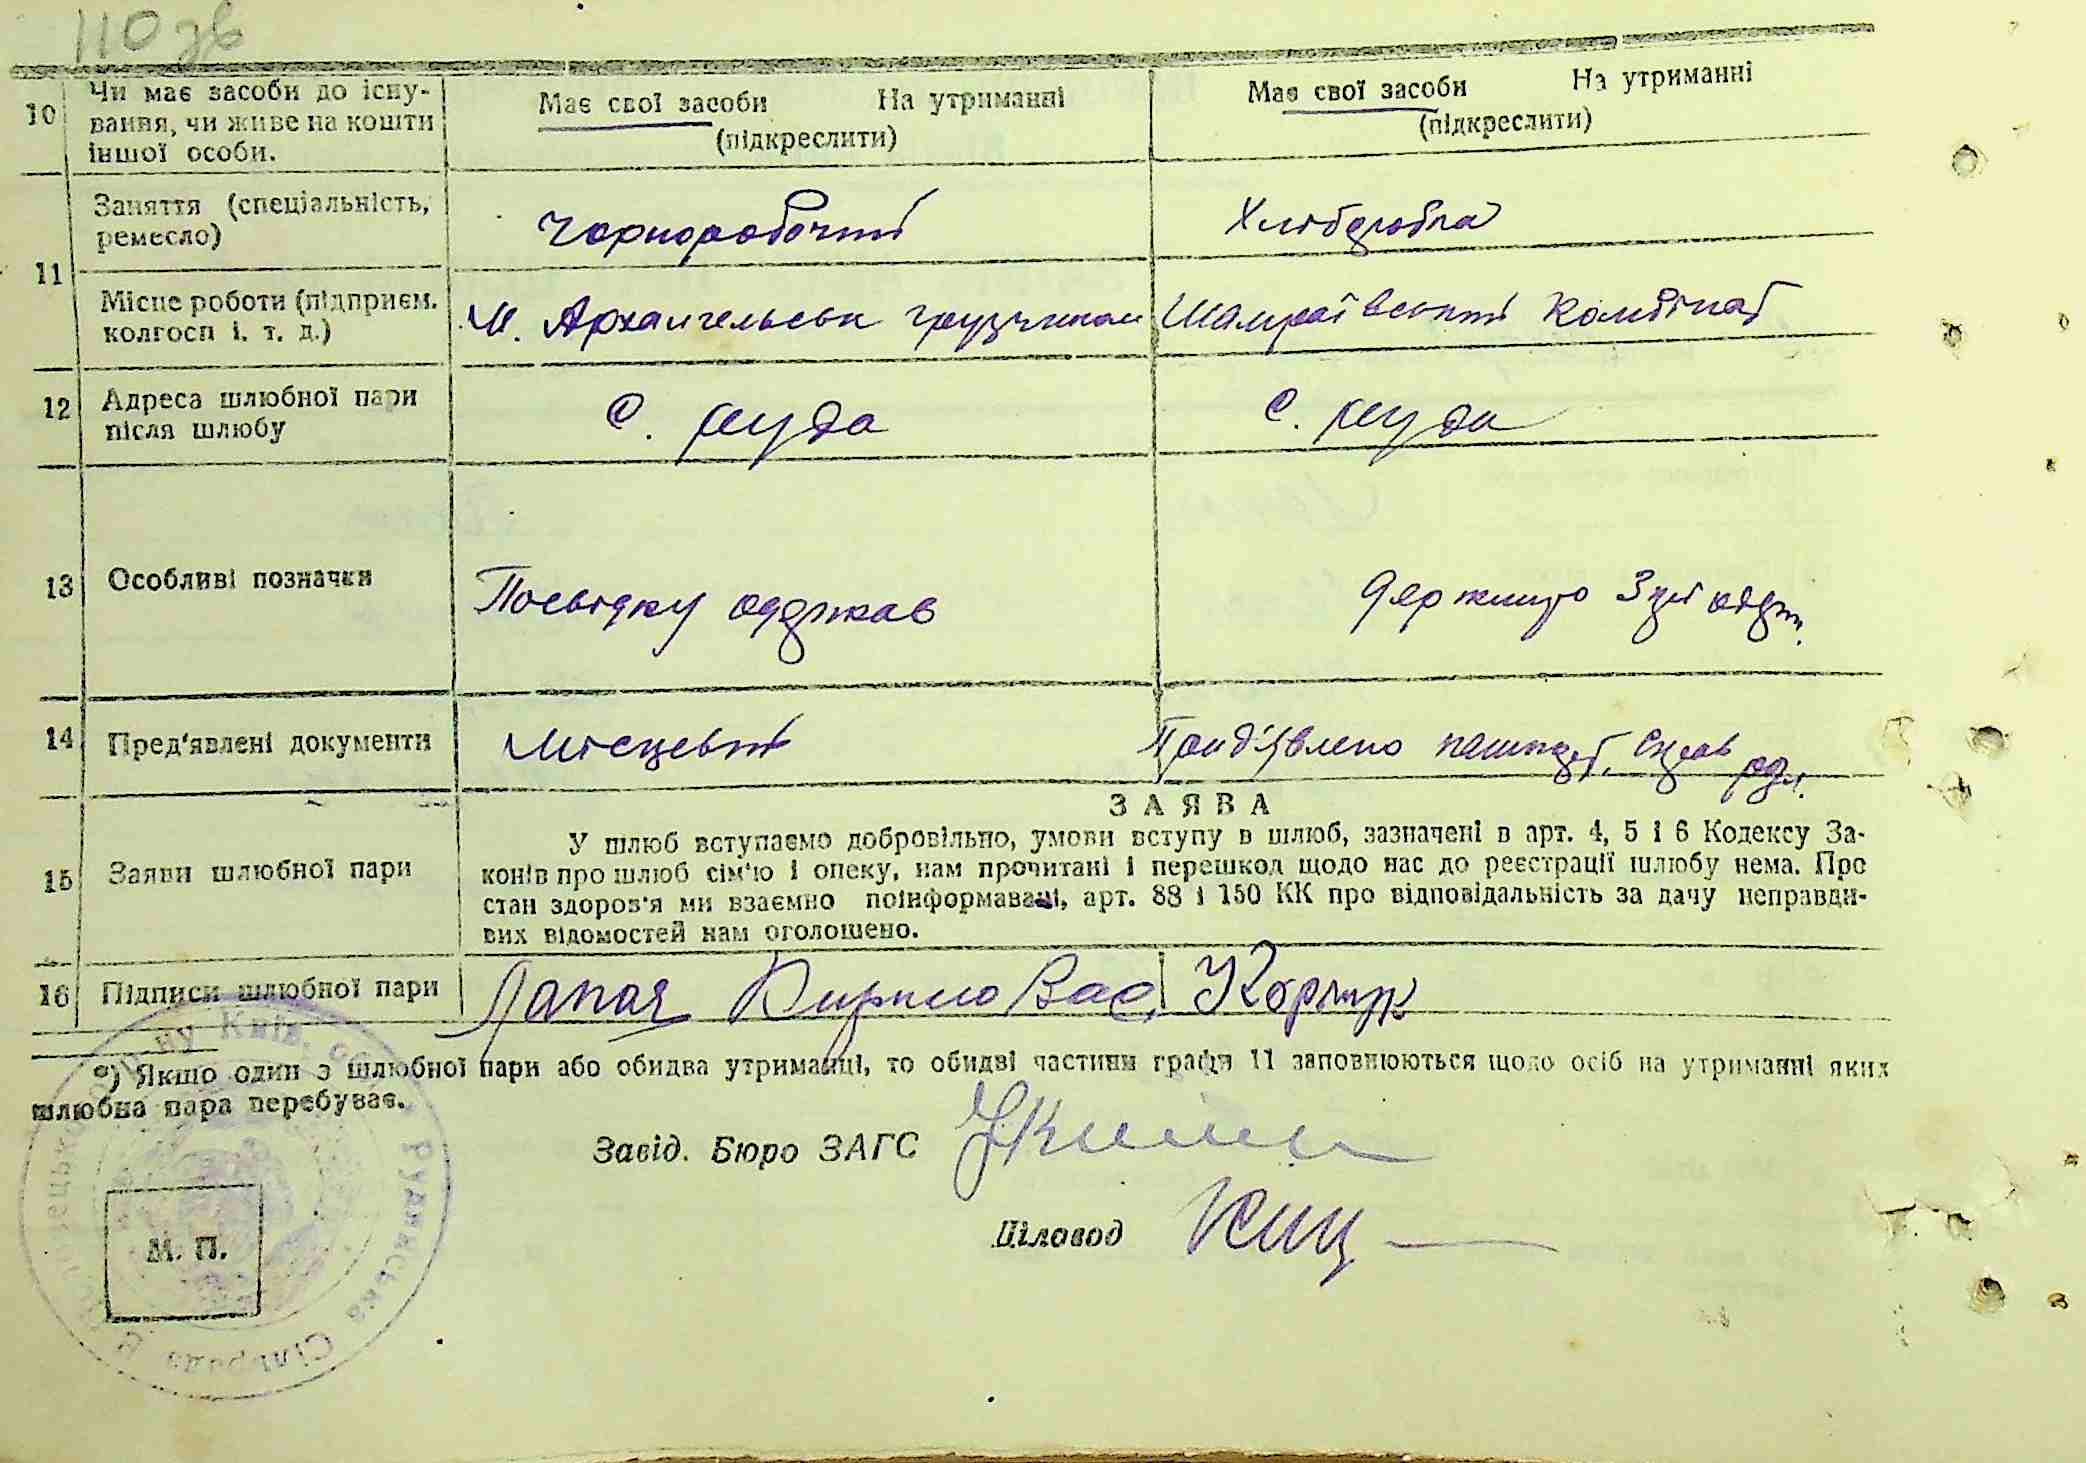 110 зв
10 Чи має засоби до існу-
вання, чи живе на кошти
іншої особи.
Має свої засоби На утриманні
(підкреслити)
Має свої засоби На утриманні
(підкреслити)
11 Заняття (спеціальність,
ремесло)
Чорноробочий
Хлібдробка
Місце роботи (підприєм.
колгосп і. т. д.)
М. Архангельськ грузчиком
Шамраївський Комбінат
12 Адреса шлюбної пари
після шлюбу
С. Руда
С. Руда
13 Особливі позначки
Посвідку одержав
Держмито
14 Пред'явлені документи
Місцевий
Пред'явлено пашпорт,
15 Заяви шлюбної пари
ЗАЯВА
У шлюб вступаємо добровільно, умови вступу в шлюб, зазначені в арт. 4, 5 і 6 Кодексу За-
конів про шлюб сім'ю і опеку, нам прочитані і перешкод щодо нас до реєстрації шлюбу нема. Про
стан здоров'я ми взаємно поінформавані, арт. 88 і 150 КК про відповідальність за дачу неправди-
вих відомостей нам оголошено.
16 Підписи шлюбної пари
Лапая Кирило Вас. Корчук
*) Якщо один з шлюбної пари або обидва утриманці, то обидві частини графи 11 заповнюються щодо осіб на утриманні яких
шлюбна пара перебуває.
Завід. Бюро ЗАГС
Діловод
М. П.
Рудянська Сільрада